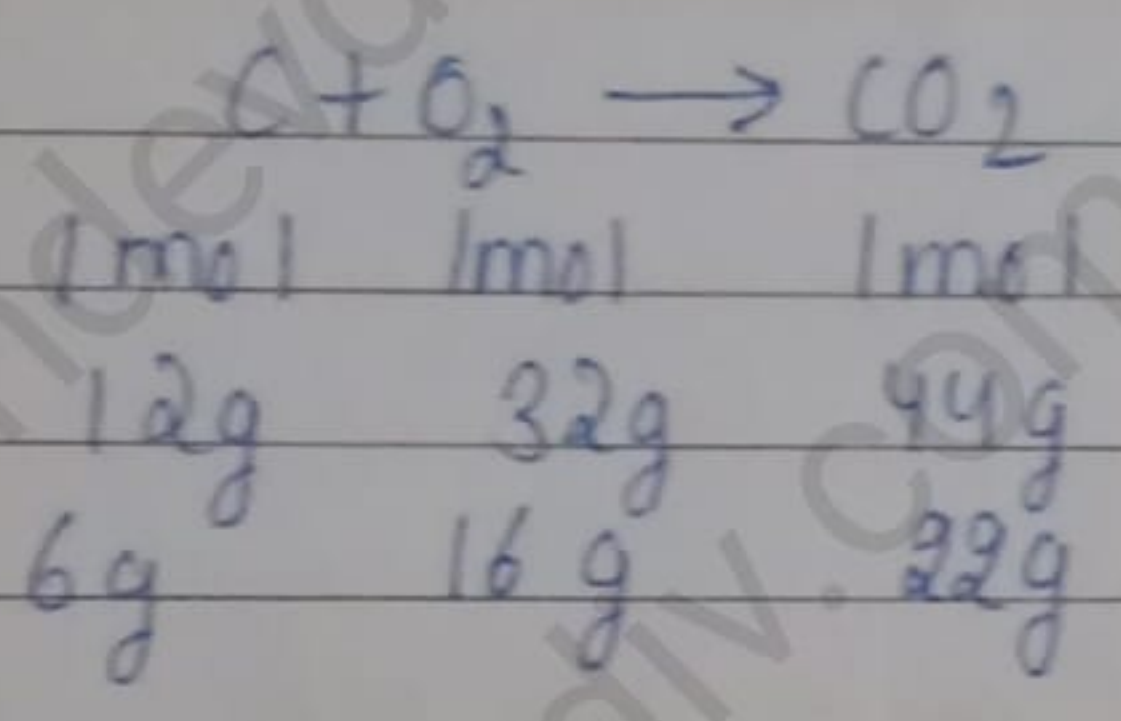 C + O₂ → CO₂
1 mol 1 mol 1 mol
12g 32g 44g
6g 16 g 22g